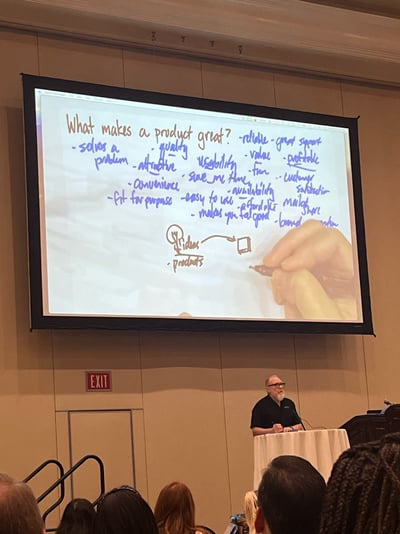 What makes a product great?
- reliable - great support
- solves a problem
- quality
- value
- profitable
- attractive
- usability
- fun
- customer satisfaction
- convenience
- save me time
- availability
- fit for purpose
- easy to use
- affordable
- makes you feel good
share
ideas
- products
EXIT